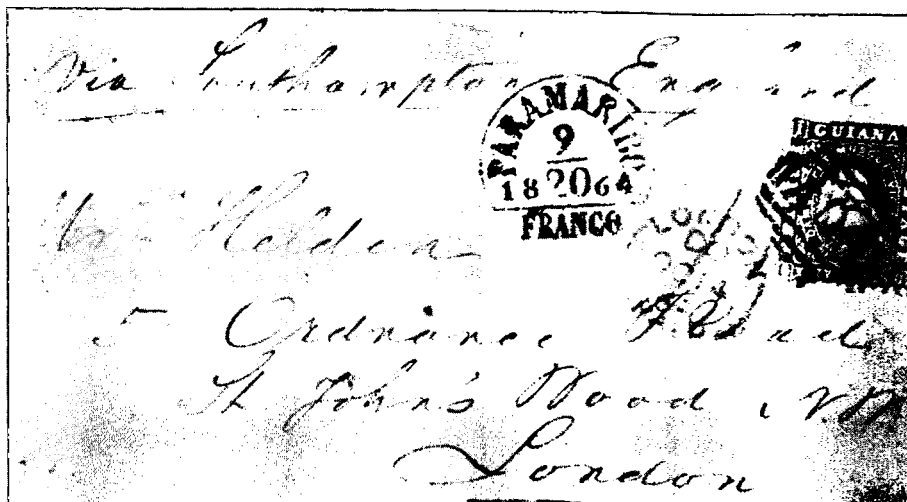 via Southampton England
PARAMARIBO
9
18 20 64
FRANCO
GUIANA
Holden
5 Ordnance Road
St John's Wood, NW
London